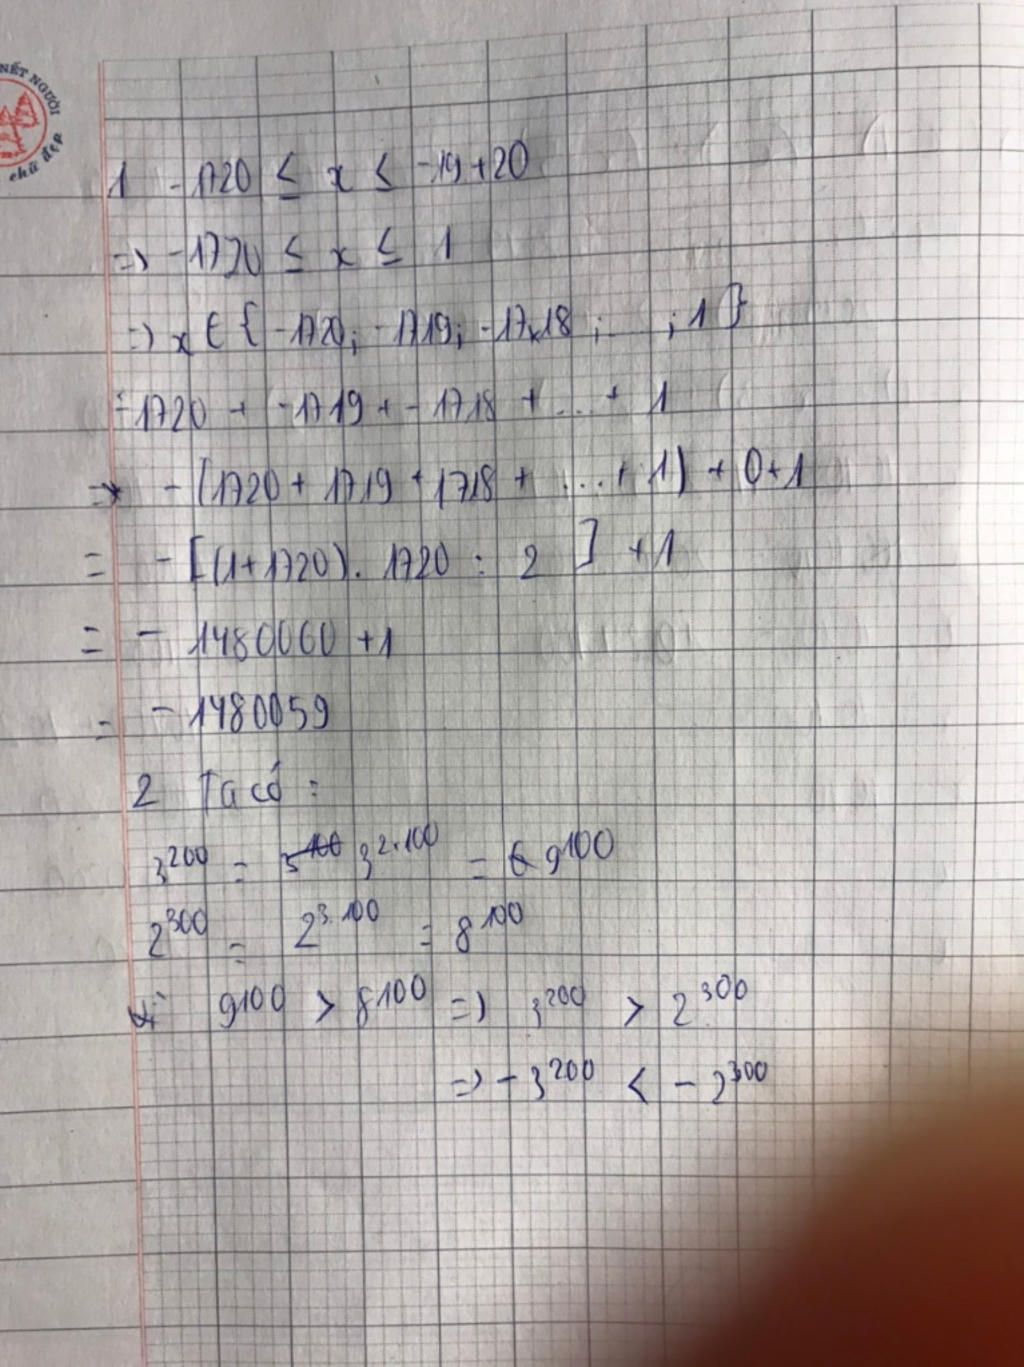 NẾT NGƯỜI
chữ đẹp
1 -1720 ≤ x ≤ -19+20
=> -1720 ≤ x ≤ 1
=> x ∈ { -1720; -1719; -1718 ; ... ; 1 }
-1720 + -1719 + -1718 + ... + 1
=> - (1720 + 1719 + 1718 + ... + 1) + 0+1
= - [(1+1720). 1720 : 2 ] +1
= - 1480060 +1
= - 1480059
2 Ta có :
3²⁰⁰ = 3²·¹⁰⁰ = 9¹⁰⁰
2³⁰⁰ = 2³·¹⁰⁰ = 8¹⁰⁰
Vì 9¹⁰⁰ > 8¹⁰⁰ => 3²⁰⁰ > 2³⁰⁰
=> - 3²⁰⁰ < - 2³⁰⁰